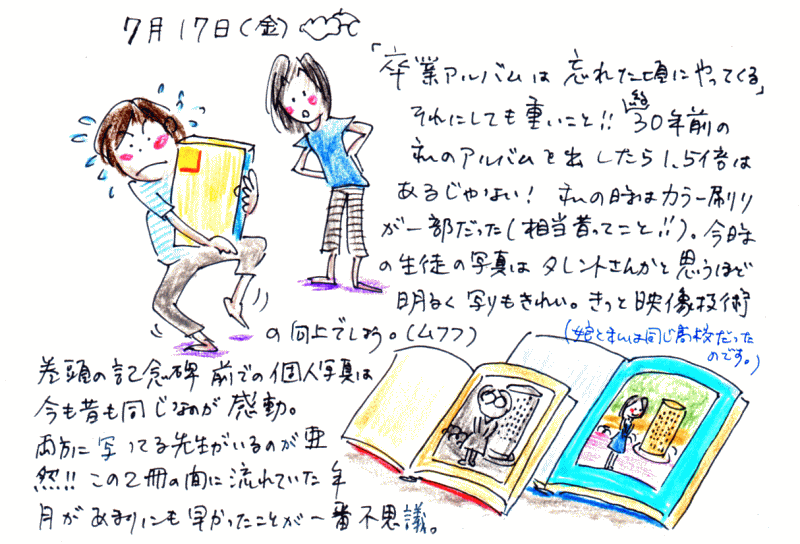 7月17日(金)
「卒業アルバムは 忘れた頃にやってくる」
それにしても重いこと!! 約30年前の
私のアルバムを出したら1.5倍は
あるじゃない! 私の時はカラー刷り
が一部だった(相当昔ってこと!!)。今時
の生徒の写真は タレントさんかと思うほど
明るく 写りもきれい。きっと映像技術
の向上でしょう。(ムフフ)
(娘と私は同じ高校だった
のです。)
巻頭の記念碑 前での個人写真は
今も昔も同じなのが 感動。
両方に 写ってる先生がいるのが 唖
然!! この2冊の間に 流れていた 年
月が あまりにも 早かったことが 一番不思議。